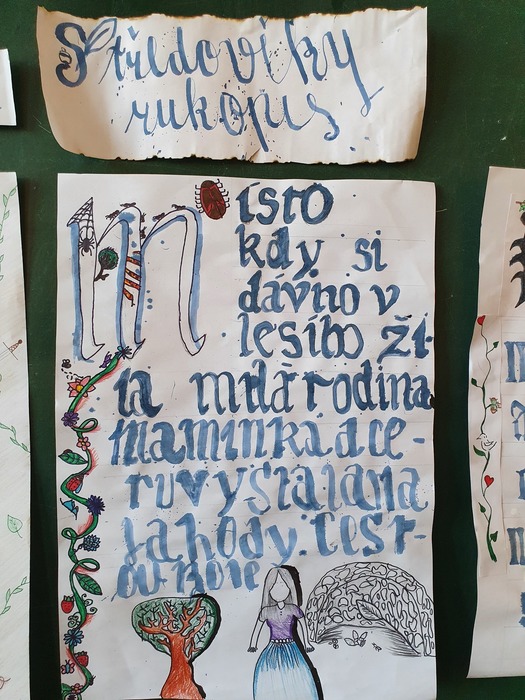 Středověký
rukopis
Místo
kdy si
dávno v
lesíbo ži-
la milá rodina
maminka dce-
ru vystalana
Jahody. Cest-